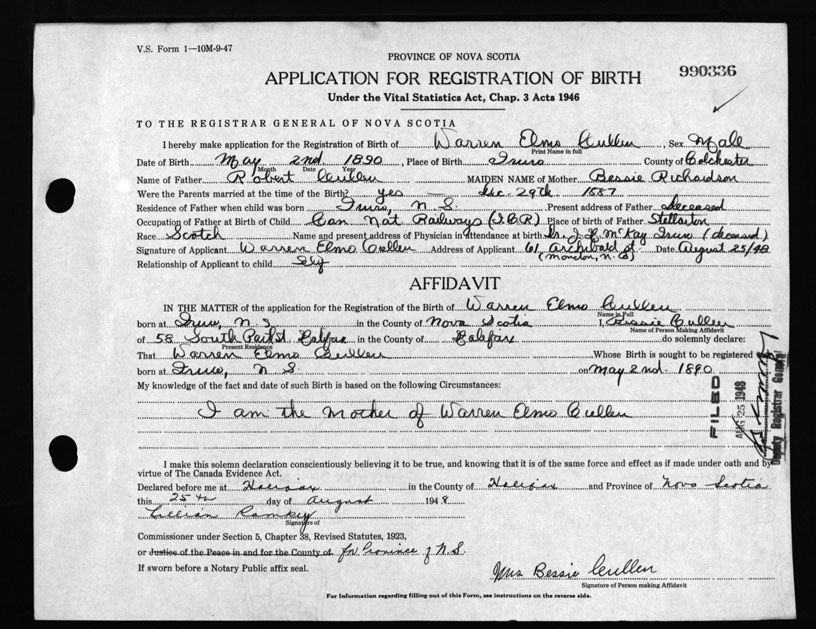 V.S. Form 1—10M-9-47
PROVINCE OF NOVA SCOTIA
APPLICATION FOR REGISTRATION OF BIRTH
990336
Under the Vital Statistics Act, Chap. 3 Acts 1946
TO THE REGISTRAR GENERAL OF NOVA SCOTIA
I hereby make application for the Registration of Birth of Warren Elmo Cullen, Sex Male
Print Name in full
Date of Birth May 2nd. 1890, Place of Birth Truro County of Colchester
Month Date Year
Name of Father Robert Cullen MAIDEN NAME of Mother Bessie Richardson
Were the Parents married at the time of the Birth? yes — Dec. 29th. 1887
Residence of Father when child was born Truro, N.S. Present address of Father deceased
Occupation of Father at Birth of Child Can Nat Railways (I.C.R) Place of birth of Father Stellarton
Race Scotch Name and present address of Physician in attendance at birth Dr. J. H. McKay Truro (deceased)
Signature of Applicant Warren Elmo Cullen Address of Applicant 61 Archibald st Date August 25/48
(Moncton, N.B)
Relationship of Applicant to child Self
AFFIDAVIT
IN THE MATTER of the application for the Registration of the Birth of Warren Elmo Cullen
Name in Full
born at Truro, N.S. in the County of Nova Scotia I, Bessie Cullen
Name of Person Making Affidavit
of 58 South Park St Halifax in the County of Halifax do solemnly declare:
Present Residence
That Warren Elmo Cullen Whose Birth is sought to be registered was
born at Truro, N S on May 2nd. 1890.
My knowledge of the fact and date of such Birth is based on the following Circumstances:
I am the mother of Warren Elmo Cullen
FILED
AUG 25 1948
Deputy Registrar General
I make this solemn declaration conscientiously believing it to be true, and knowing that it is of the same force and effect as if made under oath and by
virtue of The Canada Evidence Act.
Declared before me at Halifax in the County of Halifax and Province of Nova Scotia
this 25th day of August 1948
Lillian Rompkey
Signature of
Commissioner under Section 5, Chapter 38, Revised Statutes, 1923,
or Justice of the Peace in and for the County of. for Province of N.S.
If sworn before a Notary Public affix seal.
Mrs Bessie Cullen
Signature of Person making Affidavit
For Information regarding filling out of this Form, see instructions on the reverse side.